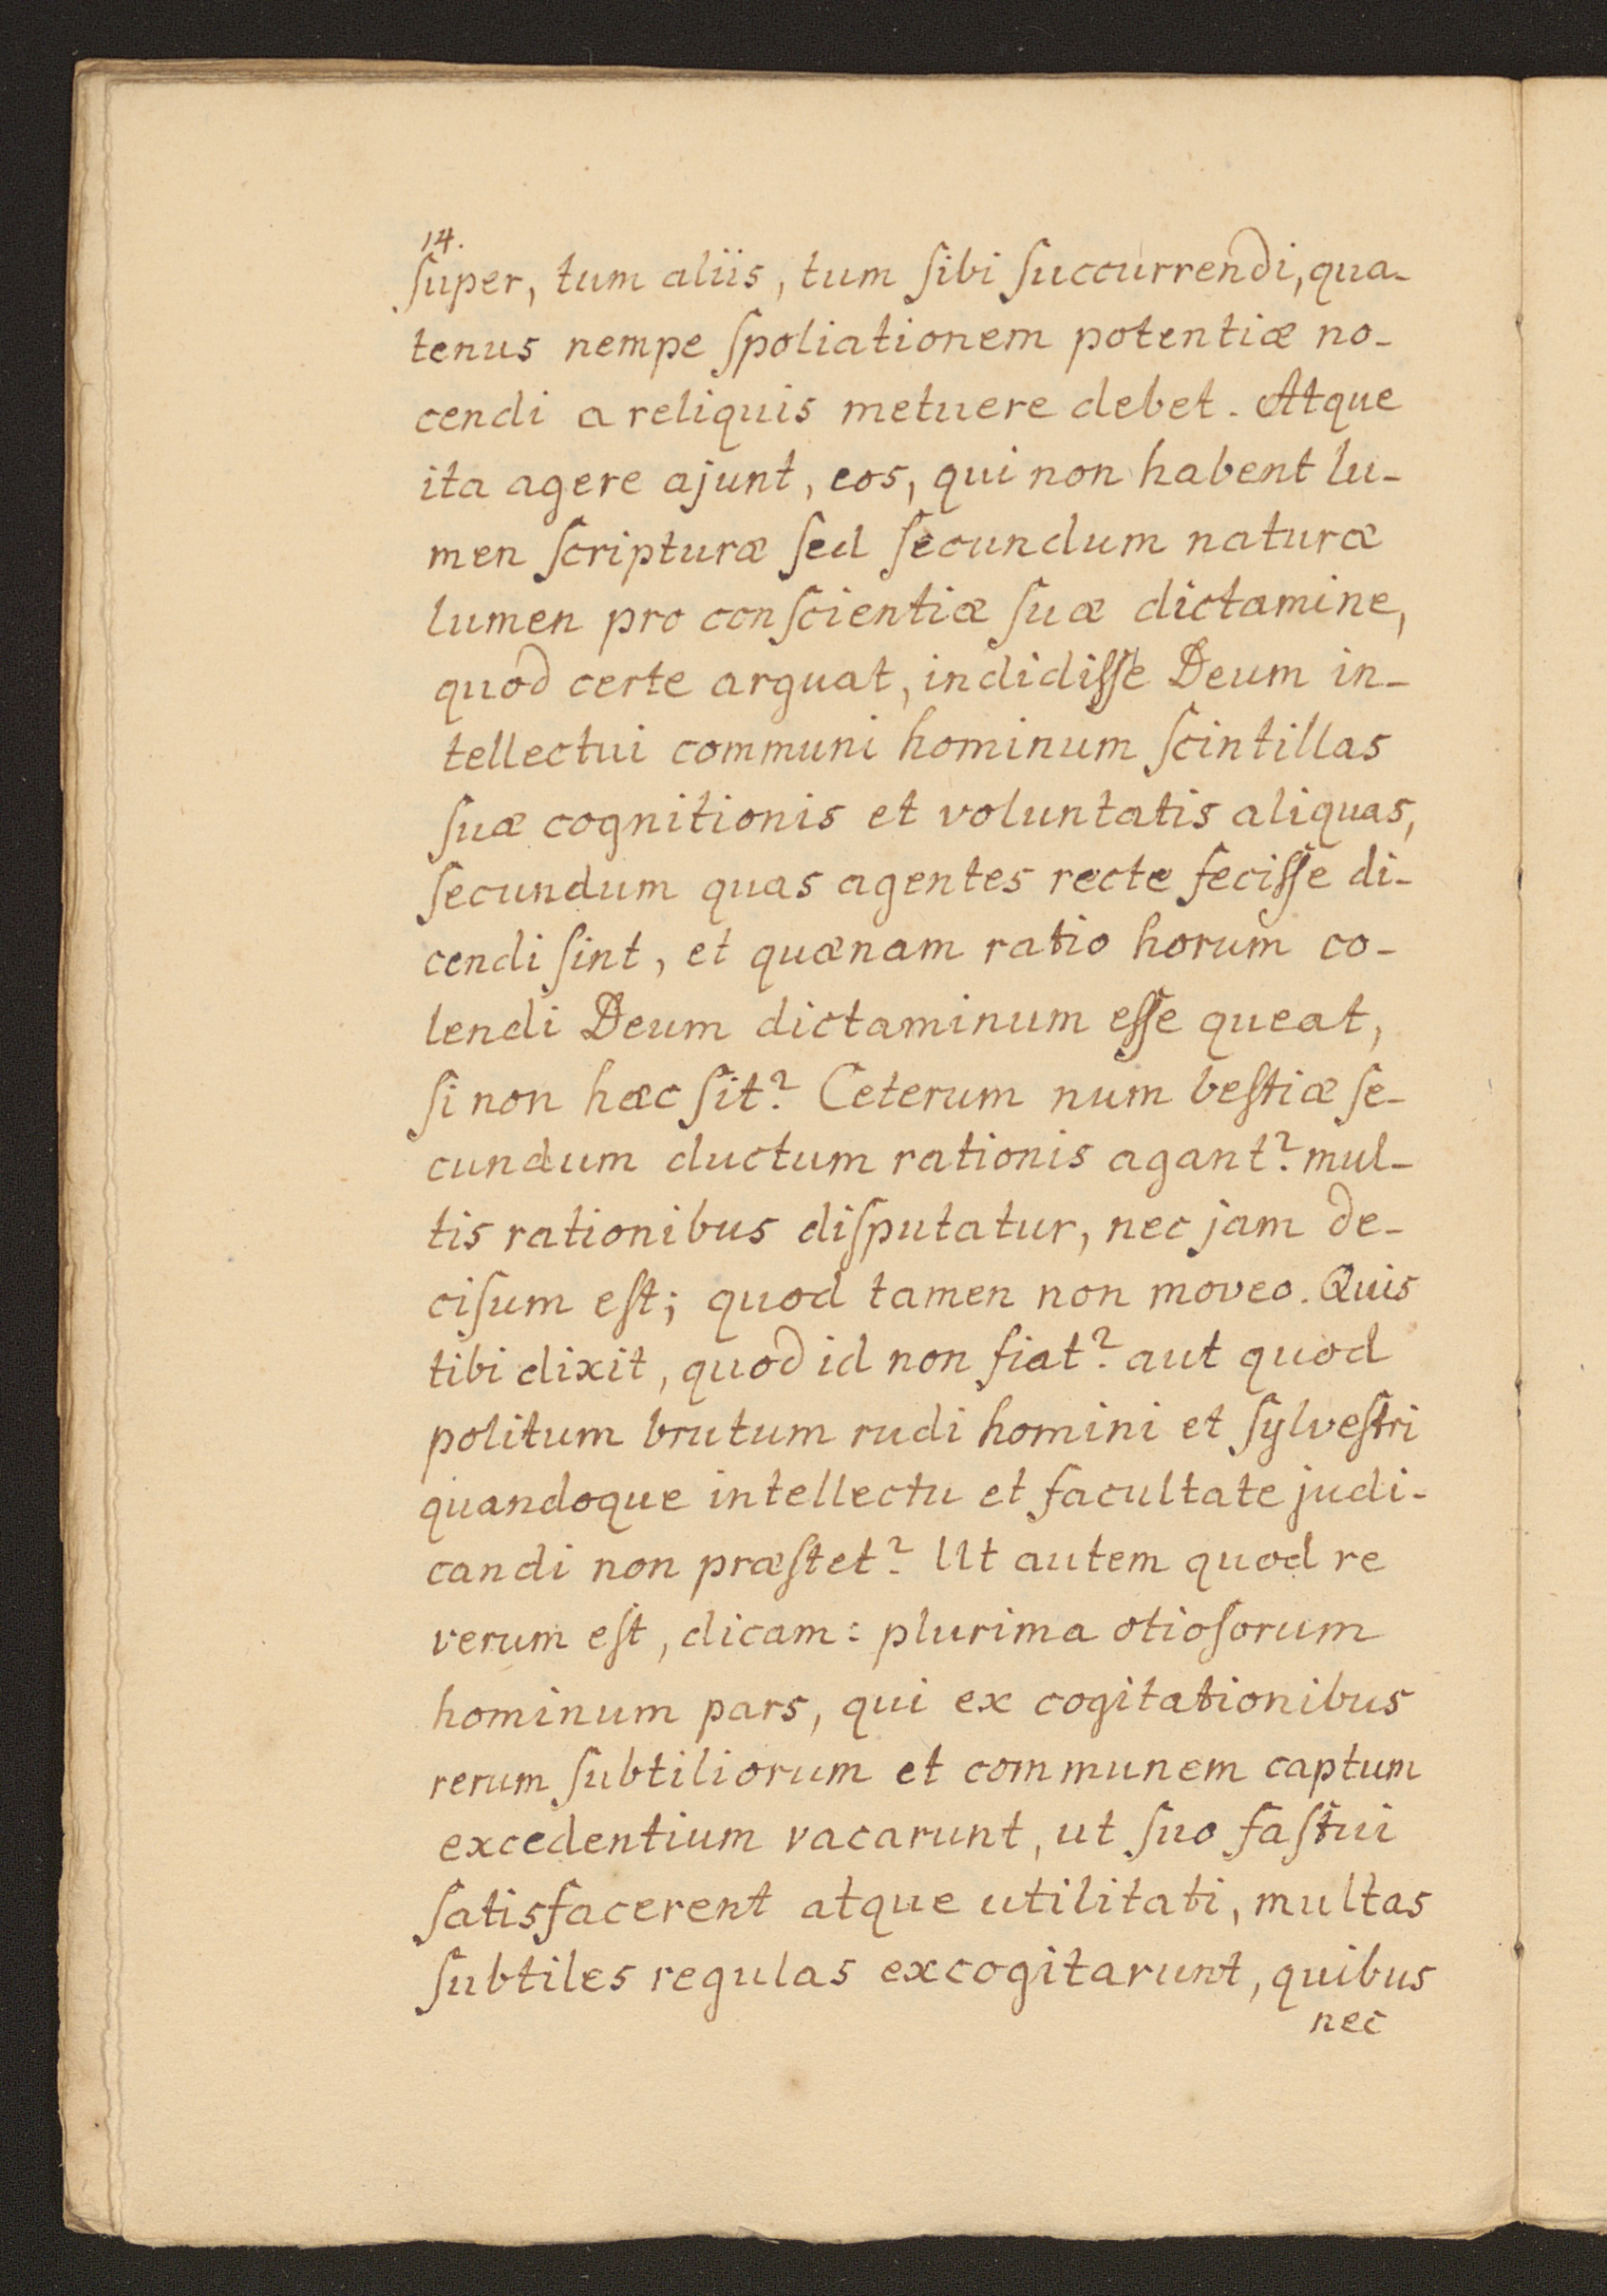 14.
ſuper, tum aliis, tum ſibi ſuccurrendi, qua-
tenus nempe ſpoliationem potentiæ no-
cendi a reliquis metuere debet. Atque
ita agere ajunt, eos, qui non habent lu-
men ſcripturæ ſed ſecundum naturæ
lumen pro conſcientiæ ſuæ dictamine,
quod certe arguat, indidiſſe Deum in-
tellectui communi hominum ſcintillas
ſuæ cognitionis et voluntatis aliquas,
ſecundum quas agentes recte feciſſe di-
cendi ſint, et quænam ratio horum co-
lendi Deum dictaminum eſſe queat,
ſi non hæc ſit? Ceterum num beſtiæ ſe-
cundum ductum rationis agant? mul-
tis rationibus diſputatur, nec jam de-
ciſum eſt; quod tamen non moveo. Quis
tibi dixit, quod id non fiat? aut quod
politum brutum rudi homini et ſylveſtri
quandoque intellectu et facultate judi-
candi non præſtet? Ut autem quod re
verum eſt, dicam: plurima otioſorum
hominum pars, qui ex cogitationibus
rerum ſubtiliorum et communem captum
excedentium vacarunt, ut ſuo faſtui
ſatisfacerent atque utilitati, multas
ſubtiles regulas excogitarunt, quibus
nec